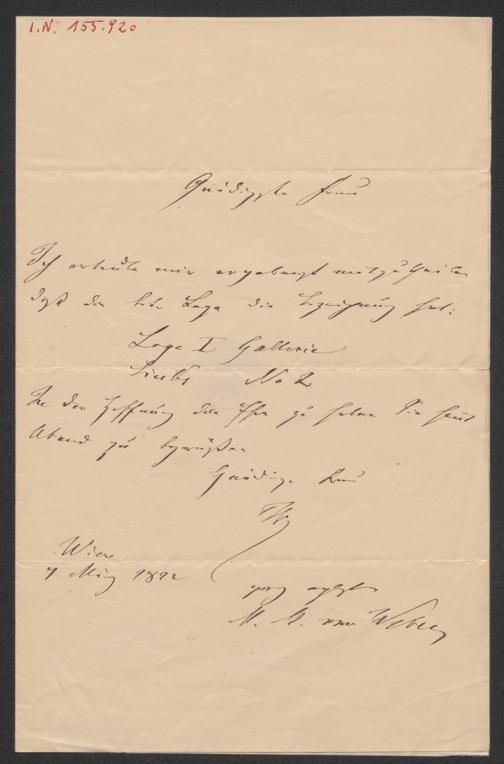 I.N. 155.920
Gnädigste Frau
Ich erlaube mir ergebenst mitzutheilen
daß die Loge die Bezeichnung hat:
Loge I Gallerie
Links No 2
In der Hoffnung die Ehre zu haben Sie heut
Abend zu begrüßen
Gnädige Frau
Ihr
Wien
7 März 1892
ganz ergebenster
M. M. von Weber